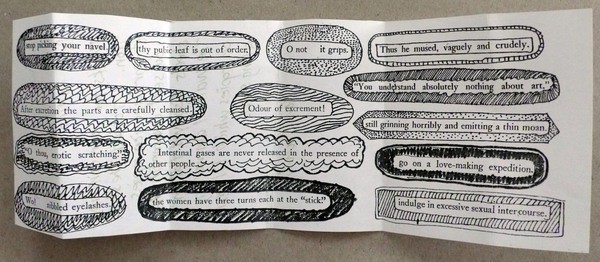 stop picking your navel.
thy pubic leaf is out of order,
O not it grips.
Thus he mused, vaguely and crudely.
"You understand absolutely nothing about art."
After excretion the parts are carefully cleansed.
Odour of excrement!
still grinning horribly and emitting a thin moan.
"O thou, erotic scratching!"
Intestinal gases are never released in the presence of
other people.
go on a love-making expedition,
Wo! nibbled eyelashes.
the women have three turns each at the "stick."
indulge in excessive sexual intercourse.